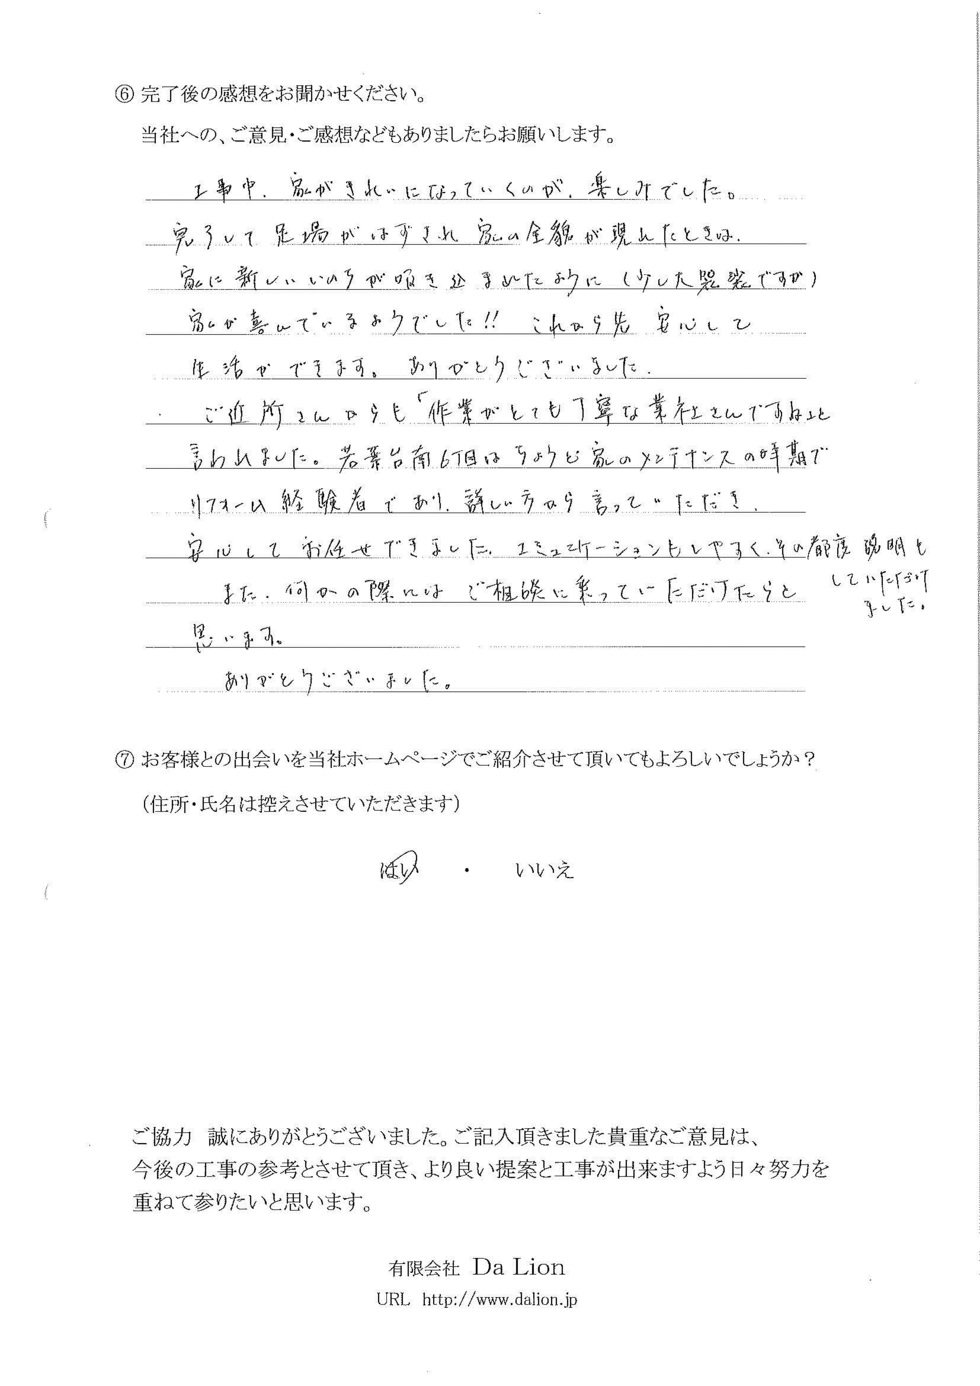 ⑥ 完了後の感想をお聞かせください。
当社への、ご意見・ご感想などもありましたらお願いします。
工事中、家がきれいになっていくのが、楽しみでした。
完了して足場がはずされ家の全貌が現れたときは、
家に新しいいのちが吹き込まれたように(少した
ですが)
家が喜んでいるようでした!! これから先 安心して
生活ができます。ありがとうございました。
ご近所さんからも「作業がとても丁寧な業社さんですね」と
言われました。若葉台南6丁目はちょうど家のメンテナンスの時期で
リフォーム経験者であり、詳しい方から言っていただき、
安心してお任せできました。コミュニケーションもしやすく、その都度説明も
していただけ
ました。
また、何かの際にはご相談に乗っていただけたらと
思います。
ありがとうございました。
⑦ お客様との出会いを当社ホームページでご紹介させて頂いてもよろしいでしょうか?
(住所・氏名は控えさせていただきます)
はい ・ いいえ
ご協力 誠にありがとうございました。ご記入頂きました貴重なご意見は、
今後の工事の参考とさせて頂き、より良い提案と工事が出来ますよう日々努力を
重ねて参りたいと思います。
有限会社 Da Lion
URL http://www.dalion.jp